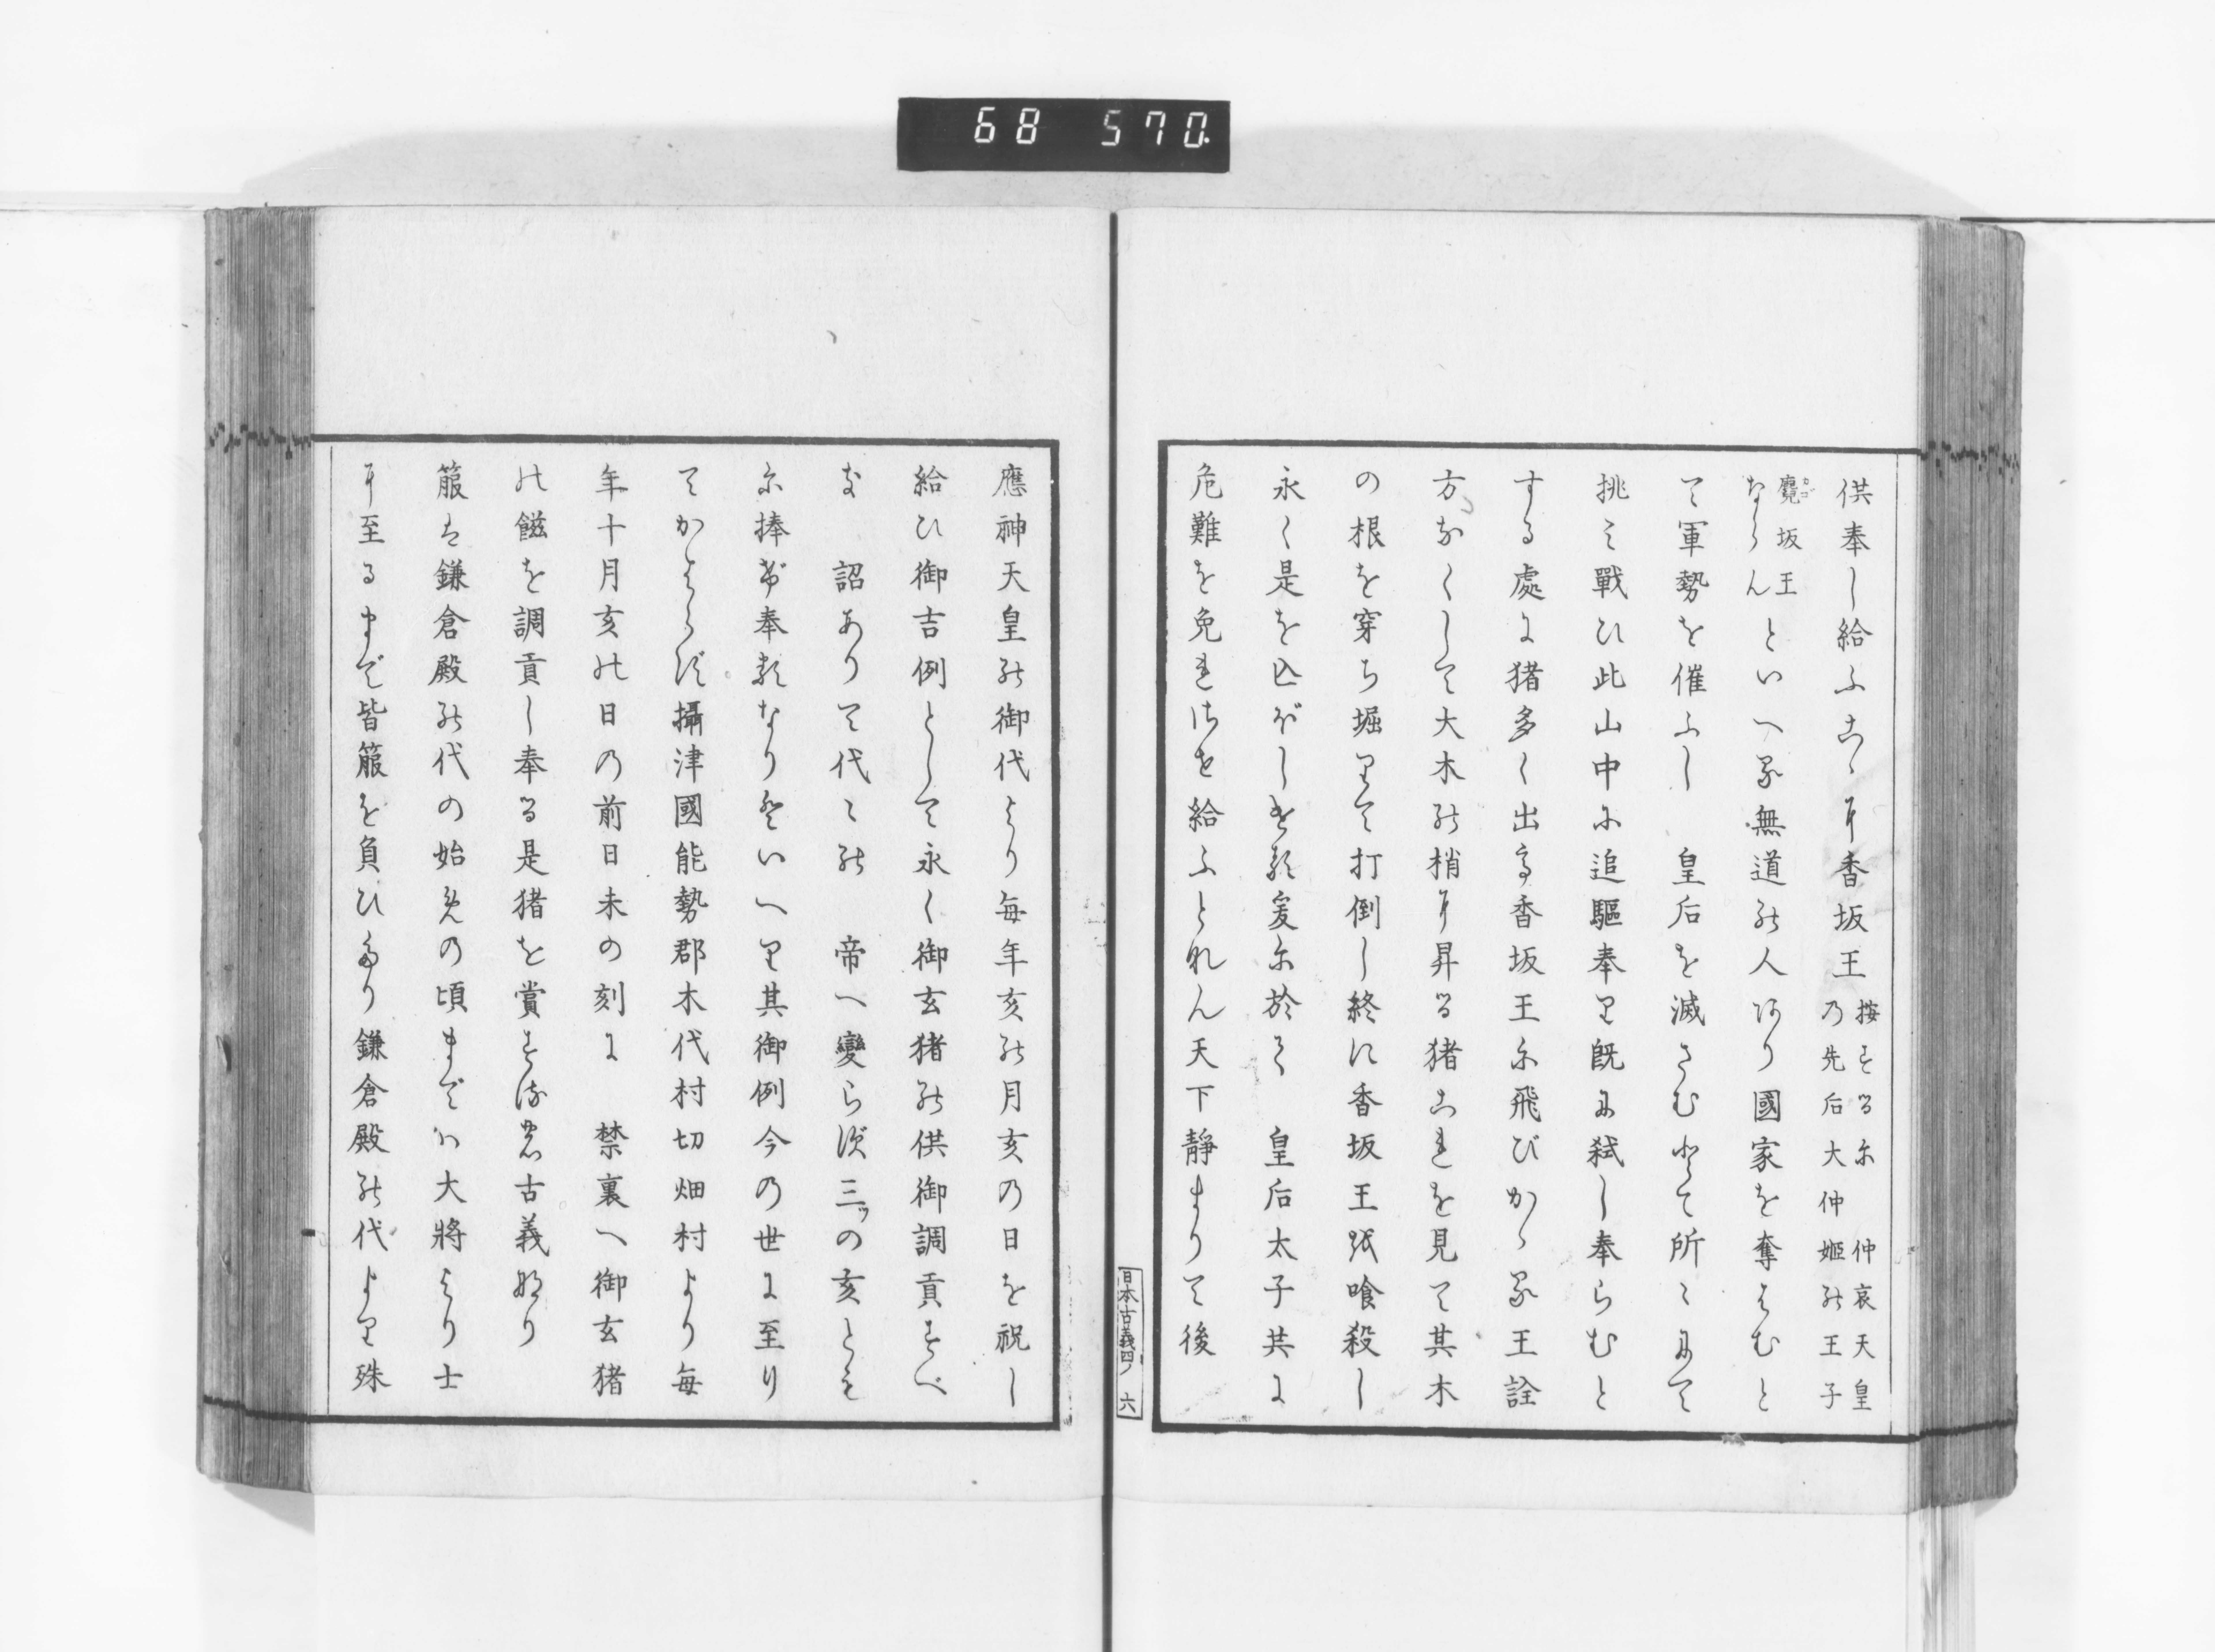 68 570
供奉し給ふこゝに香坂王 按ずるに 仲哀天皇
乃先后大仲姫の王子
麛坂王
ならん といへる無道の人あり國家を奪はむと
て軍勢を催ふし 皇后を滅さむとて所〻にて
挑ミ戰ひ此山中に追驅奉りて既に弑し奉らむと
する處に猪多く出て香坂王に飛びかゝる王詮
方なくして大木の梢に昇る猪これを見て其木
の根を穿ち堀りて打倒し終に香坂王を喰殺し
永く是を亡ぼしける爰に於て 皇后太子共に
危難を免れさせ給ふとなん天下靜まりて後
日本古義四ノ 六
應神天皇の御代より毎年亥の月亥の日を祝し
給ひ御吉例として永く御玄猪の供御調貢すべ
き 詔ありて代〻の 帝へ變らず三ッの亥とも
に捧げ奉るなりといへり其御例今の世に至り
てかはらず攝津國能勢郡木代村切畑村より毎
年十月亥の日の前日未の刻に 禁裏へ御玄猪
の餈を調貢し奉る是猪を賞する古義なり
箙は鎌倉殿の代の始めの頃までハ大將より士
に至るまで皆箙を負ひたり鎌倉殿の代より殊